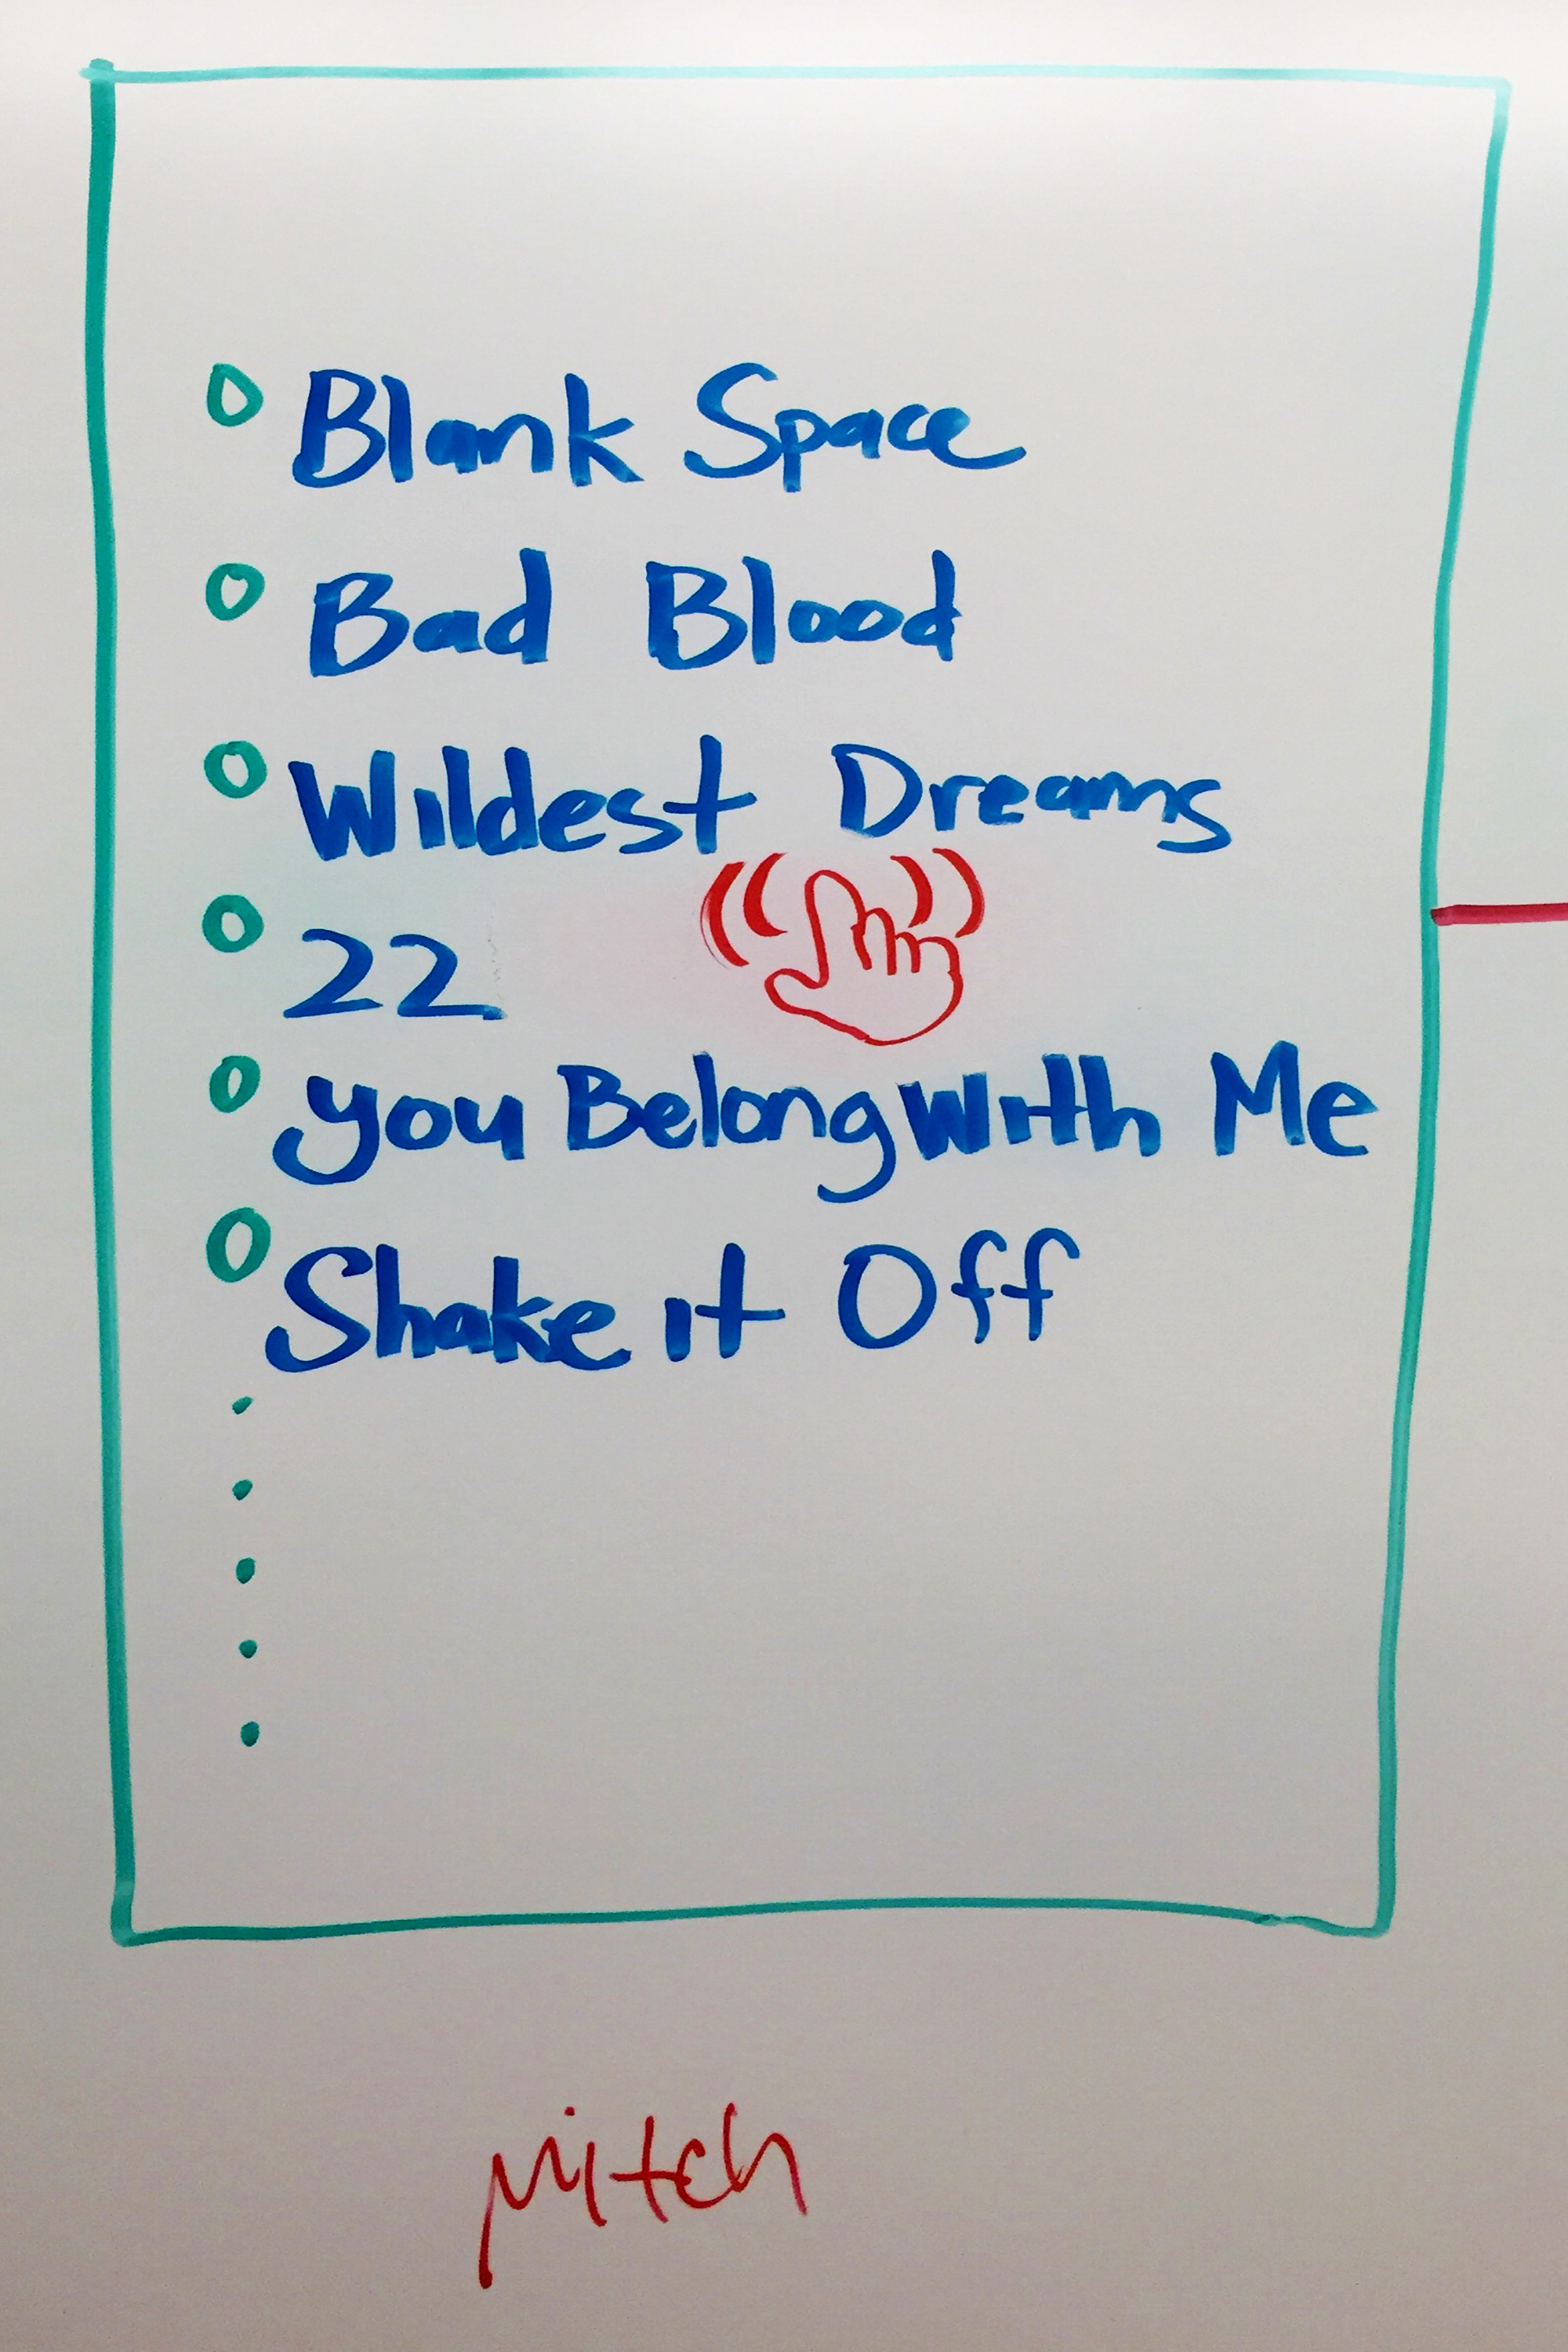 Blank Space
Bad Blood
Wildest Dreams
22
you Belong With Me
Shake it Off
mitch